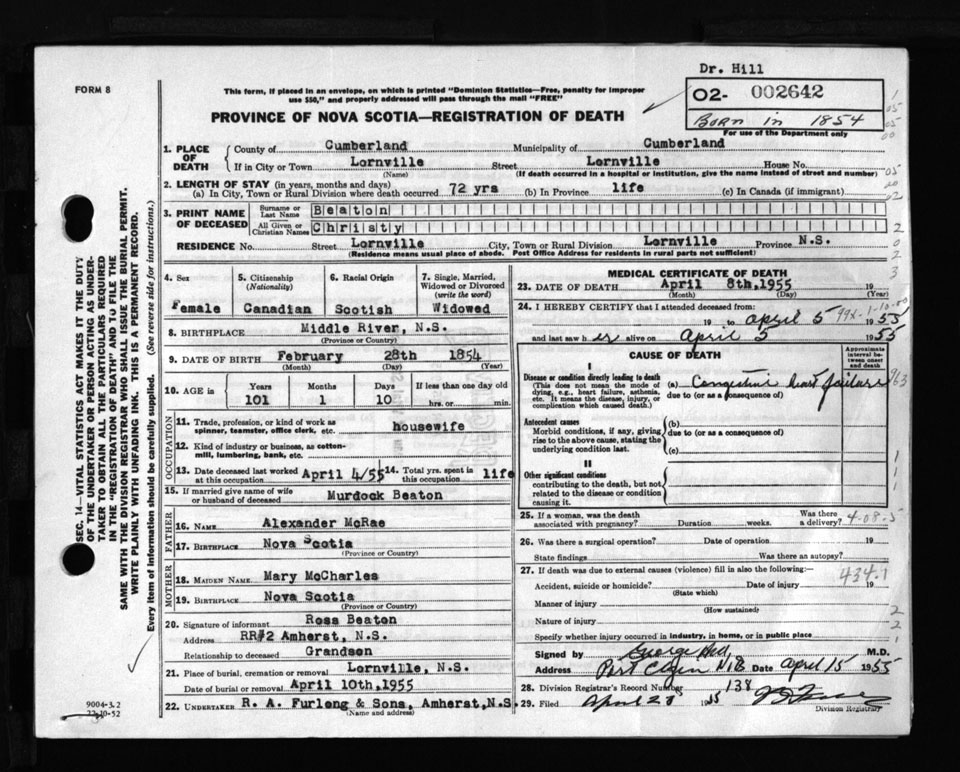 Dr. Hill
FORM 8
This form, if placed in an envelope, on which is printed "Dominion Statistics—Free, penalty for improper
use $50," and properly addressed will pass through the mail "FREE"
02- 002642
Born in 1854
For use of the Department only
PROVINCE OF NOVA SCOTIA—REGISTRATION OF DEATH
1. PLACE OF DEATH
County of Cumberland Municipality of Cumberland
If in City or Town Lornville Street Lornville House No.
(Name) (If death occurred in a hospital or institution, give the name instead of street and number)
2. LENGTH OF STAY (in years, months and days)
(a) In City, Town or Rural Division where death occurred 72 yrs (b) In Province life (c) In Canada (if immigrant)
3. PRINT NAME OF DECEASED
Surname or Last Name Beaton
All Given or Christian Names Christy
RESIDENCE No. Street Lornville City, Town or Rural Division Lornville Province N.S.
(Residence means usual place of abode. Post Office Address for residents in rural parts not sufficient)
4. Sex
Female
5. Citizenship
(Nationality)
Canadian
6. Racial Origin
Scotish
7. Single, Married,
Widowed or Divorced
(write the word)
Widowed
8. BIRTHPLACE Middle River, N.S.
(Province or Country)
9. DATE OF BIRTH February 28th 1854
(Month) (Day) (Year)
10. AGE IN
Years Months Days If less than one day old
101 1 10 hrs. or min.
OCCUPATION
11. Trade, profession, or kind of work as
spinner, teamster, office clerk, etc. housewife
12. Kind of industry or business, as cotton-
mill, lumbering, bank, etc.
13. Date deceased last worked
at this occupation April 4/55
14. Total yrs. spent in
this occupation life
15. If married give name of wife
or husband of deceased Murdock Beaton
FATHER
16. NAME Alexander McRae
17. BIRTHPLACE Nova Scotia
(Province or Country)
MOTHER
18. MAIDEN NAME Mary McCharles
19. BIRTHPLACE Nova Scotia
(Province or Country)
20. Signature of informant Ross Beaton
Address RR#2 Amherst, N.S.
Relationship to deceased Grandson
21. Place of burial, cremation or removal Lornville, N.S.
Date of burial or removal April 10th, 1955
22. UNDERTAKER R. A. Furlong & Sons, Amherst, N.S.
(Name and address)
MEDICAL CERTIFICATE OF DEATH
23. DATE OF DEATH April 8th, 1955 19
(Month) (Day) (Year)
24. I HEREBY CERTIFY that I attended deceased from:
19 to April 5 1955
and last saw h er alive on April 5 1955
CAUSE OF DEATH
Approximate
interval be-
tween onset
and death
I
Disease or condition directly leading to death
(This does not mean the mode of
dying, e.g., heart failure, asthenia,
etc. It means the disease, injury, or
complication which caused death.)
(a) Congestive heart failure
due to (or as a consequence of)
Antecedent causes
Morbid conditions, if any, giving
rise to the above cause, stating the
underlying condition last.
(b)
due to (or as a consequence of)
(c)
II
Other significant conditions
contributing to the death, but not
related to the disease or condition
causing it.
25. If a woman, was the death
associated with pregnancy? Duration weeks. Was there
a delivery?
4-08-5
26. Was there a surgical operation? Date of operation 19
State findings Was there an autopsy?
27. If death was due to external causes (violence) fill in also the following:—
434.1
Accident, suicide or homicide? Date of injury 19
(State which)
Manner of injury
(How sustained)
Nature of injury
Specify whether injury occurred in industry, in home, or in public place
Signed by George Hill M.D.
Address Port Elgin N.B. Date April 15 1955
28. Division Registrar's Record Number 138
29. Filed April 28 1955
Division Registrar
SEC. 14—VITAL STATISTICS ACT MAKES IT THE DUTY
OF THE UNDERTAKER OR PERSON ACTING AS UNDER-
TAKER TO OBTAIN ALL THE PARTICULARS REQUIRED
IN THE "REGISTRATION OF DEATH" AND TO FILE THE
SAME WITH THE DIVISION REGISTRAR WHO SHALL ISSUE THE BURIAL PERMIT.
WRITE PLAINLY WITH UNFADING INK. THIS IS A PERMANENT RECORD.
Every item of information should be carefully supplied. (See reverse side for instructions.)
9004-3.2